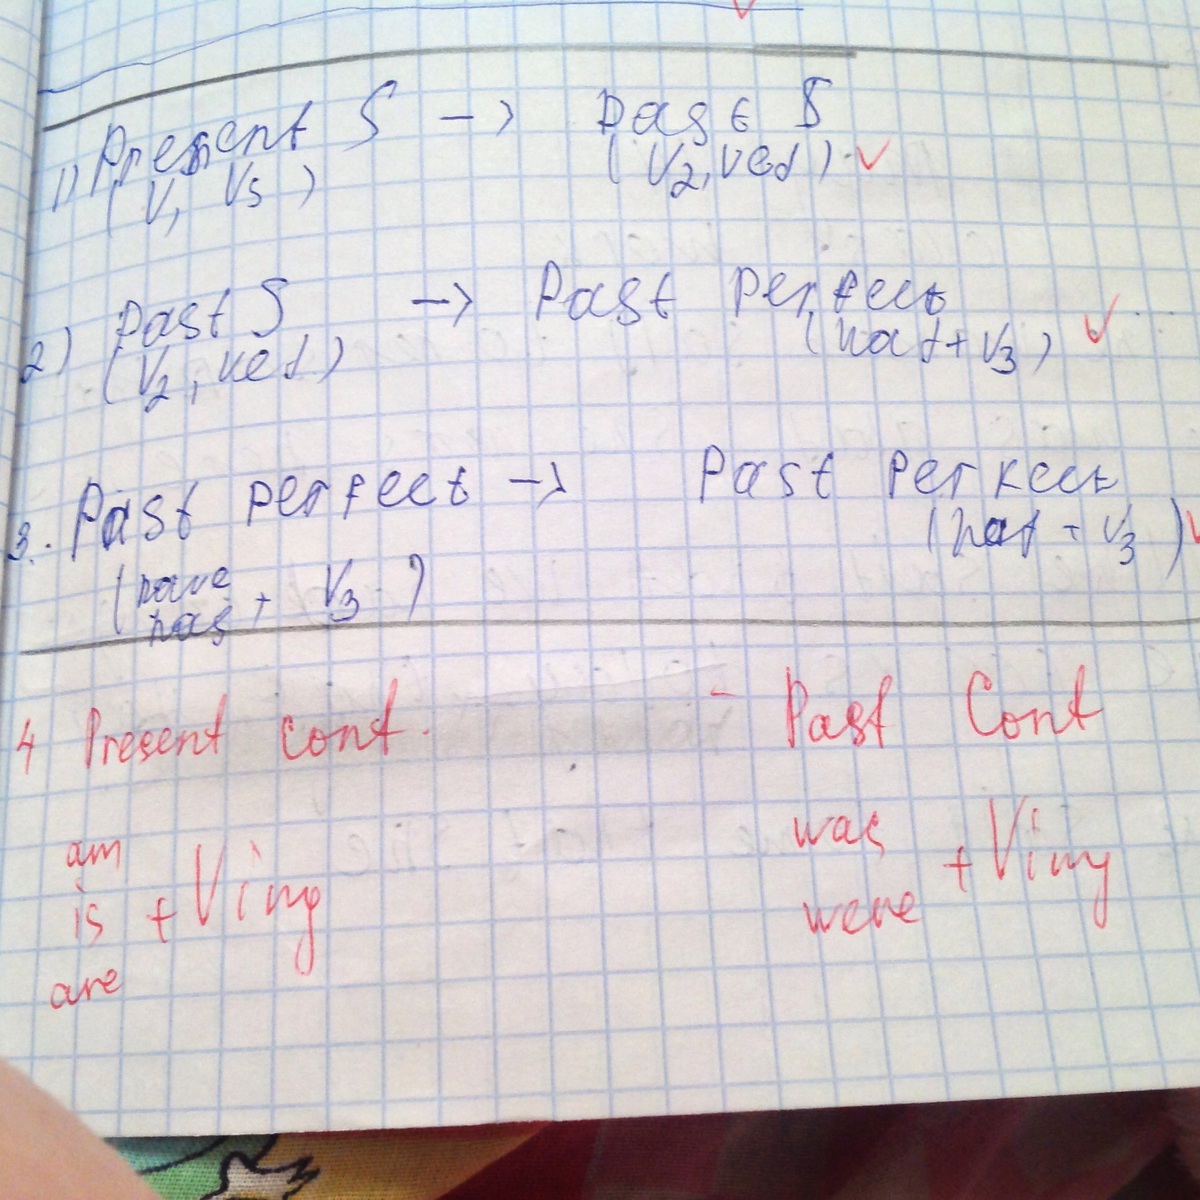 1) Present S -> Past S
(V, Vs) (V2, Ved)
2) Past S -> Past Perfect
(V2, Ved) (had + V3)
3. Past perfect -> Past Perfect
(have has + V3) (had + V3)
4 Present cont. - Past Cont
am is are + Ving was were + Ving